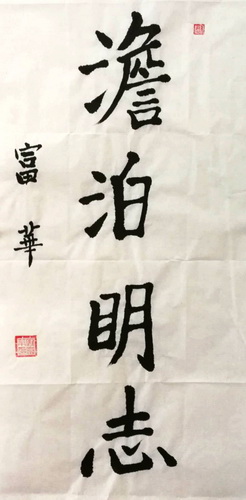 澹泊明志
富華